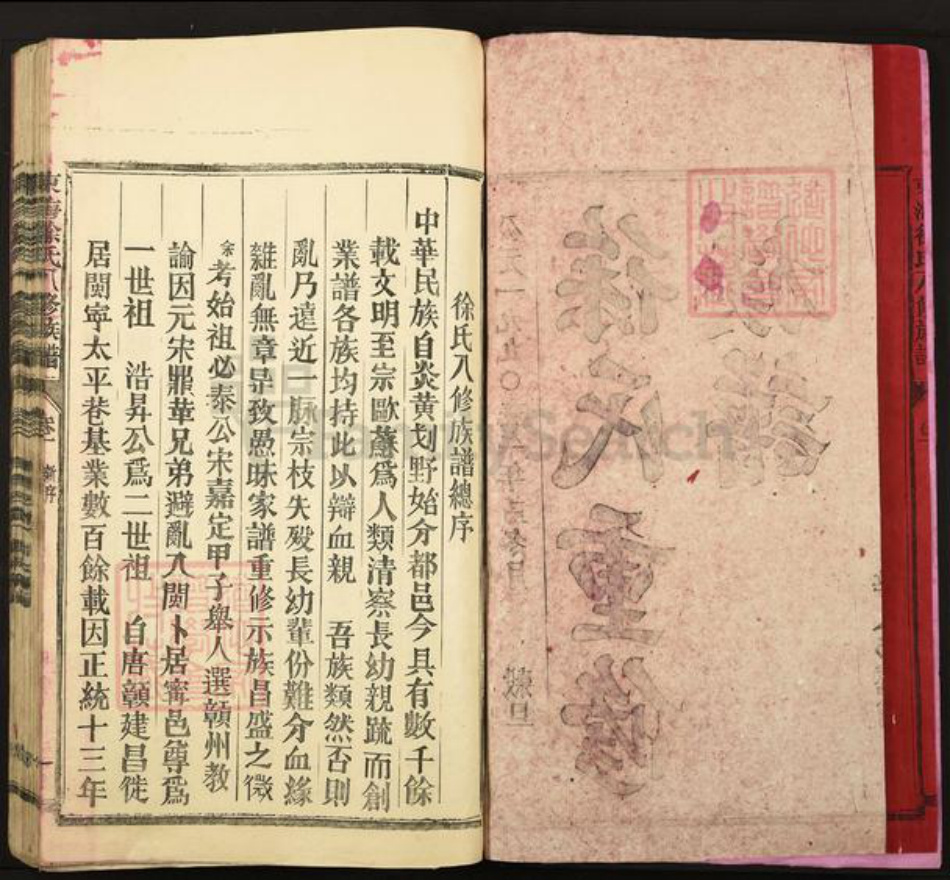 徐氏八修族譜總序
中華民族自炎黄划野始分都邑今具有數千餘
載文明至宗歐蘇爲人類清察長幼親疏而創
業譜各族均持此以辯血親 吾族類然否則
亂乃遠近一脉宗枝失殿長幼輩份難分血緣
雜亂無章导致愚昧家譜重修示族昌盛之徵
余考始祖必泰公宋嘉定甲子舉人選贛州教
論因元宋鼎華兄弟避亂入閩卜居寗邑尊爲
一世祖 浩昇公爲二世祖 自唐贛建昌徙
居閩寧太平巷基業數百餘載因正統十三年
東海徐氏八修族譜 卷一 新序
徐氏重修
族譜
穀旦